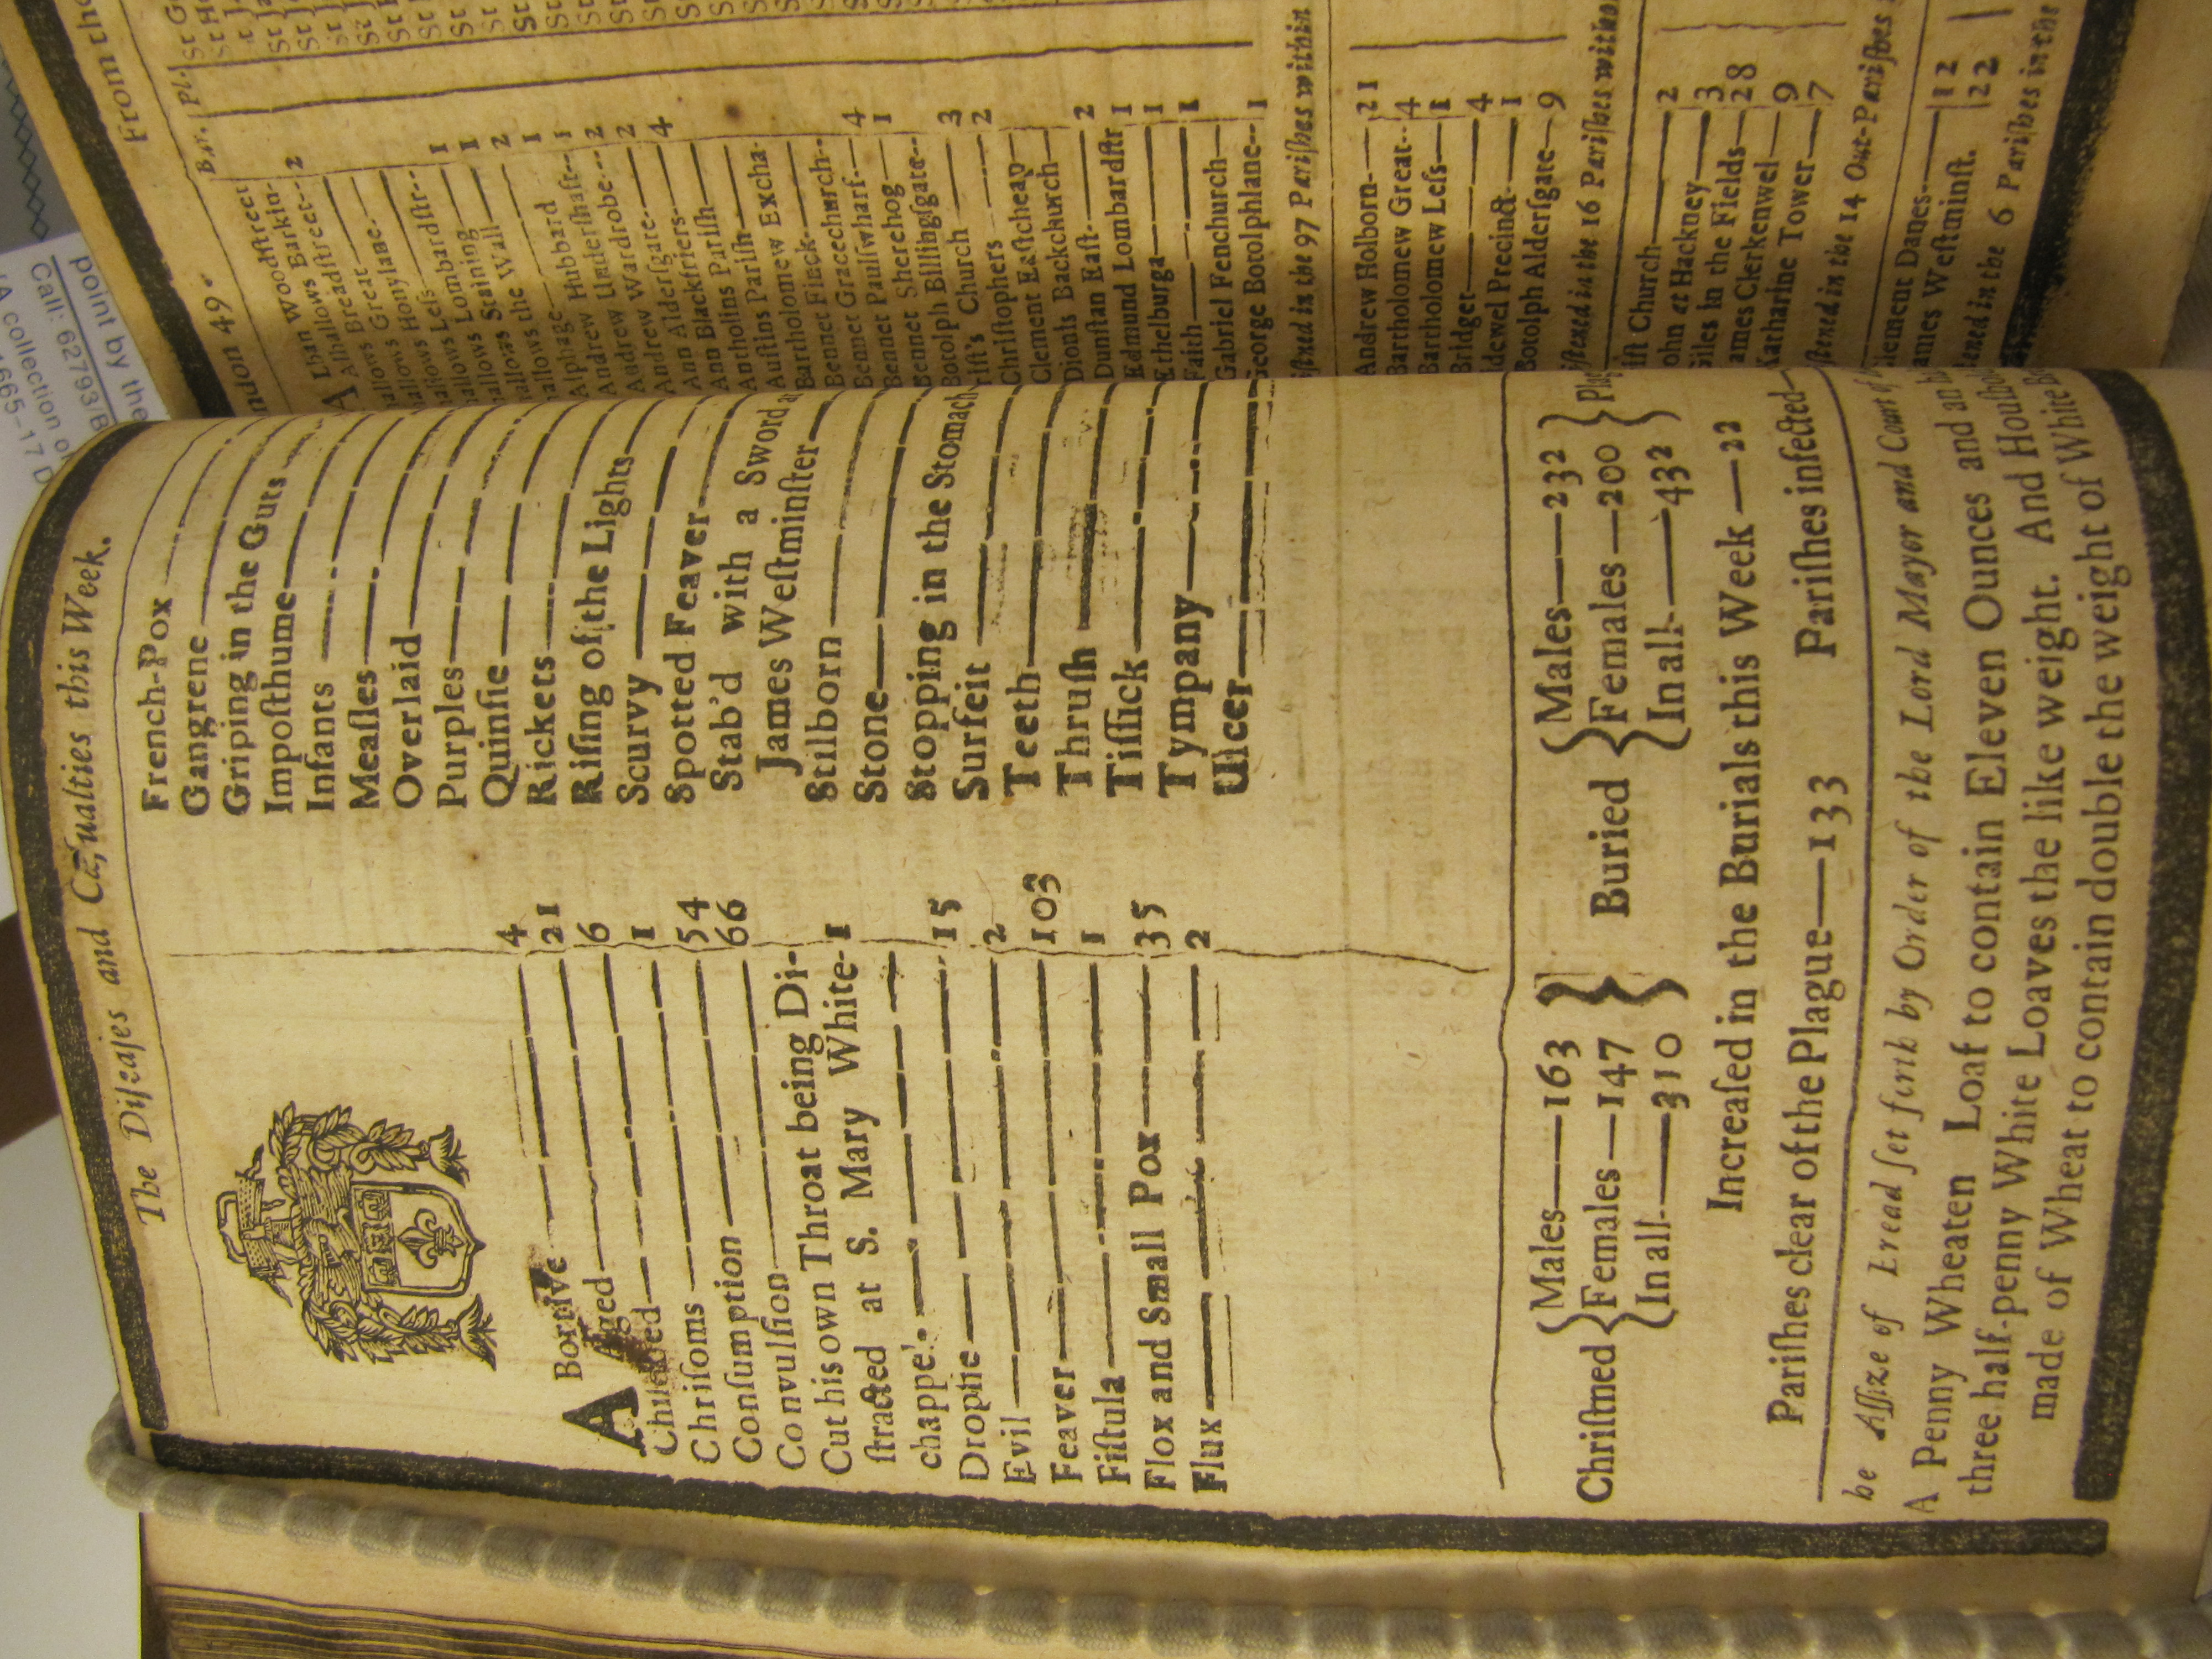 The Diſeaſes and Caſualties this Week.
ABortive 4
Aged 21
Childbed 6
Chriſoms 1
Conſumption 54
Convulſion 66
Cut his own Throat being Di-
ſtracted at S. Mary White-
chappel 1
Dropſie 15
Evil 2
Feaver 103
Fiſtula 1
Flox and Small Pox 35
Flux 2
French-Pox
Gangrene
Griping in the Guts
Impoſthume
Infants
Meaſles
Overlaid
Purples
Quinſie
Rickets
Riſing of the Lights
Scurvy
Spotted Feaver
Stab'd with a Sword
James Weſtminſter
Stilborn
Stone
Stopping in the Stomach
Surfeit
Teeth
Thruſh
Tiſſick
Tympany
Ulcer
Chriſtned { Males 163
Females 147
In all 310 }
Buried { Males 232
Females 200
In all 432 }
Increaſed in the Burials this Week 22
Pariſhes clear of the Plague 133 Pariſhes infected
he Aſſize of Bread ſet forth by Order of the Lord Mayor and Court of
A Penny Wheaten Loaf to contain Eleven Ounces and
three half-penny White Loaves the like weight. And
made of Wheat to contain double the weight of White
ndon 49
From the
Bur. Pl.
Alban Woodſtreet
Alhallows Barkin 2
Alhallows Breadſtreet
allows Great
allows Honylane
allows Leſs
allows Lombardſtr 1
allows Staining 1
allows the Wall 2
Alphage 1
Andrew Hubbard 1
Andrew Underſhaft 2
Andrew Wardrobe 2
Ann Alderſgate 4
Ann Blackfriers
Antholins Pariſh
Auſtins Pariſh
Bartholomew Excha
Bennet Finck
Bennet Gracechurch 4
Bennet Paulſwharf 1
Bennet Sherehog
Botolph Billingſgate 3
riſt's Church 2
Chriſtophers
Clement Eaſtcheap
Dionis Backchurch 2
Dunſtan Eaſt 1
Edmund Lombardſtr 1
Ethelburga 1
Faith
Gabriel Fenchurch
George Botolphlane 1
iſtned in the 97 Pariſhes within
Andrew Holborn 21
Bartholomew Great 4
Bartholomew Leſs 1
Bridget 4
idewel Precinct 1
Botolph Alderſgate 9
iſtened in the 16 Pariſhes witho
iſt Church 2
ohn at Hackney 3
Giles in the Fields 28
ames Clerkenwel 9
Katharine Tower 7
ſtened in the 14 Out-Pariſhes
lement Danes 12
ames Weſtminſt. 22
tened in the 6 Pariſhes in the
point by the
Call: 62793/B
A collection o
1665-17 D